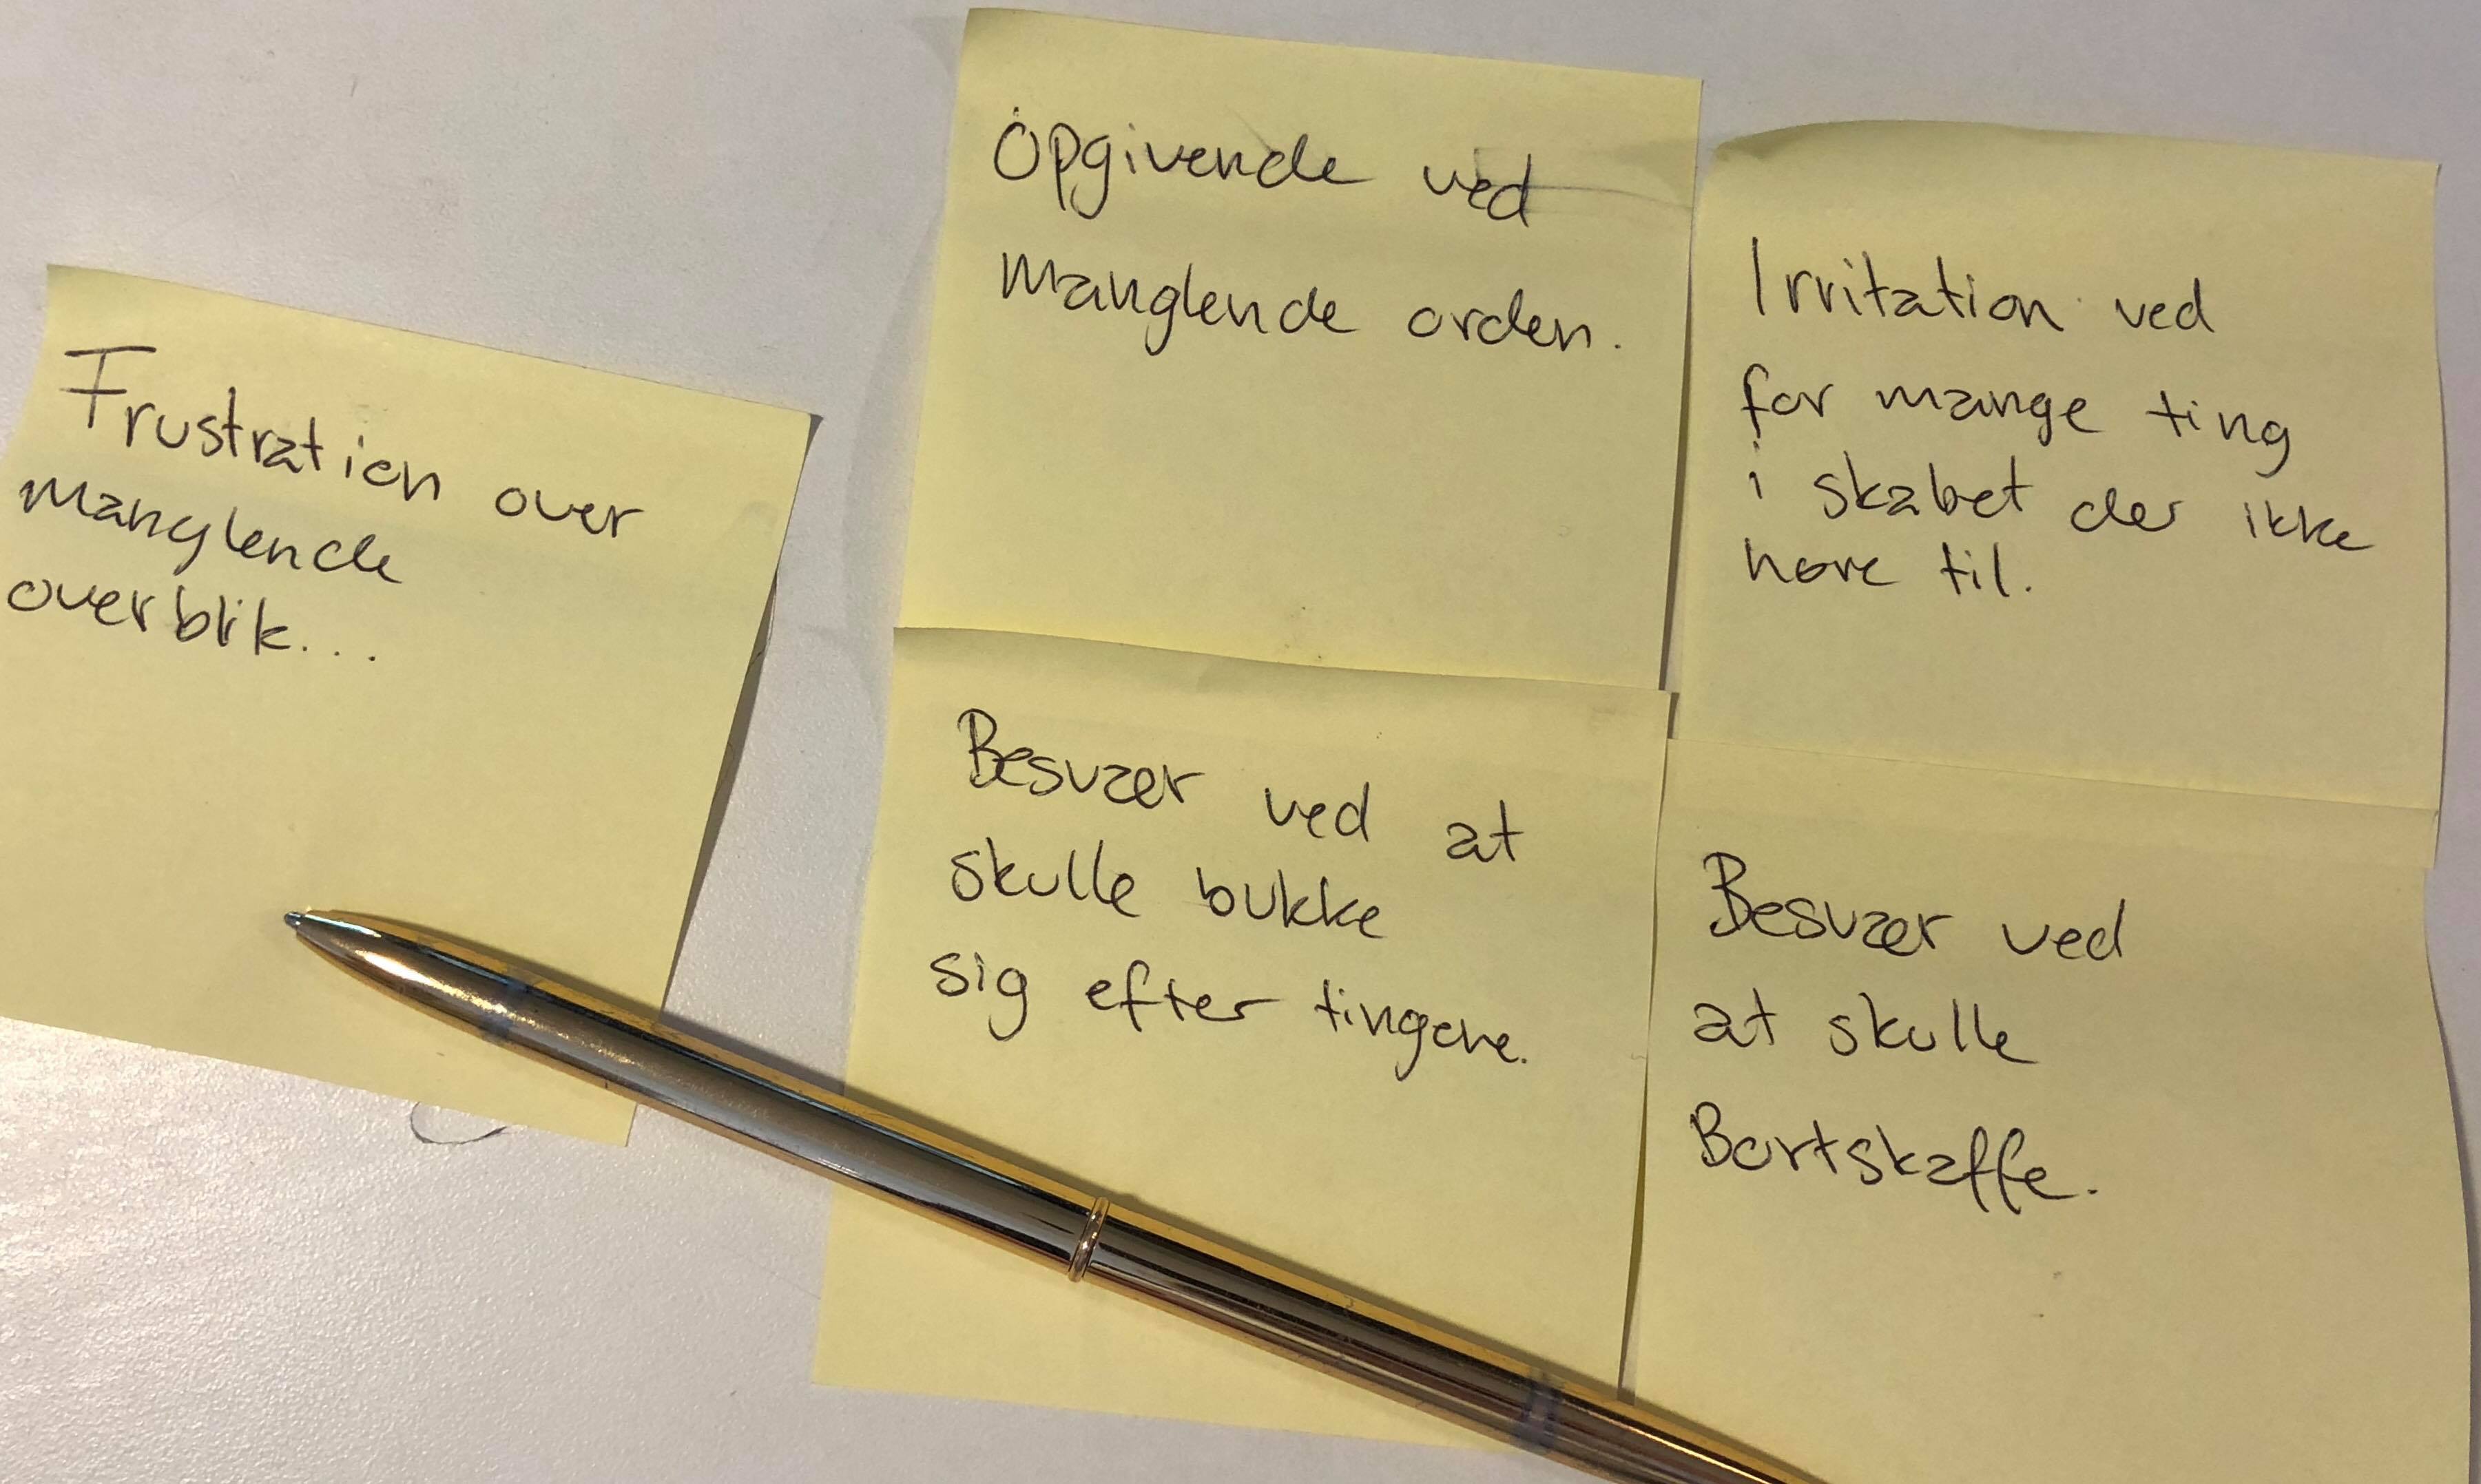 Frustration over
manglende
overblik...
Opgivende ved
manglende orden.
Irritation ved
for mange ting
i skabet der ikke
høre til.
Besvær ved at
skulle bukke
sig efter tingene.
Besvær ved
at skulle
Bortskaffe.